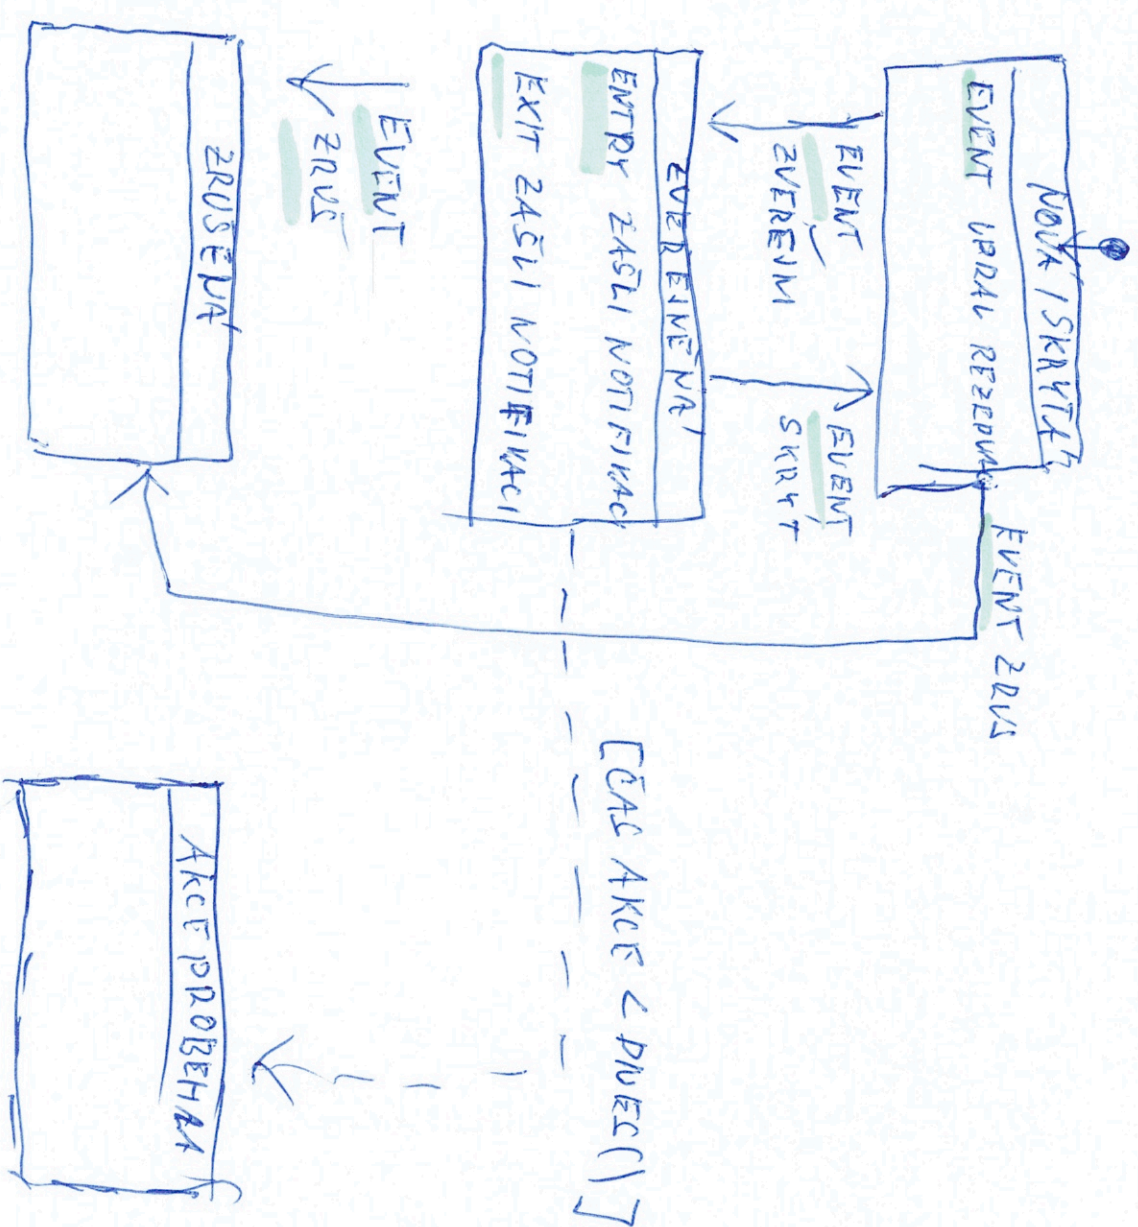 NOVÁ / SKRYTÁ
EVENT UPRAV REZERVACI
EVENT ZRUŠ
EVENT
ZVEREJNI
EVENT
SKRYT
ZVEREJNĚNÁ
ENTRY ZAŠLI NOTIFIKACI
EXIT ZAŠLI NOTIFIKACI
[ČAS AKCE < DNES()]
EVENT
ZRUŠ
ZRUŠENÁ
AKCE PROBĚHLA